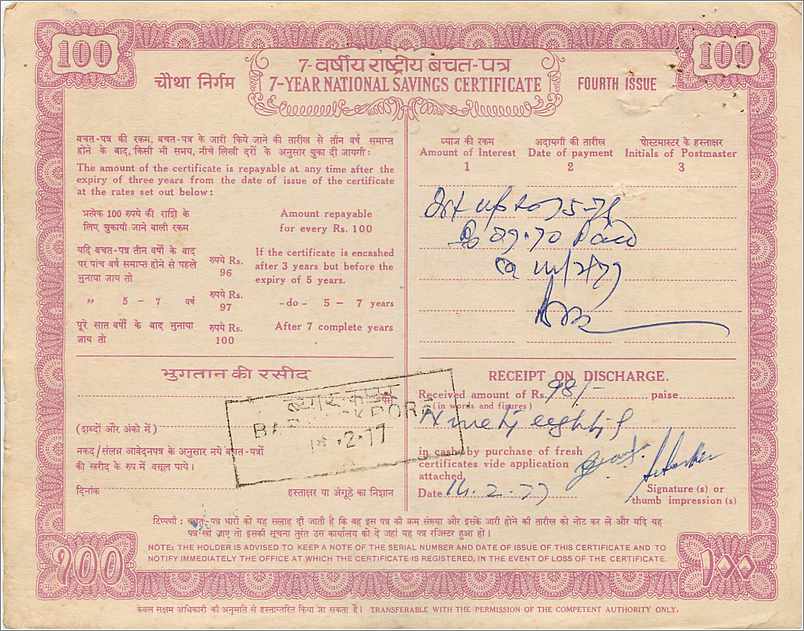 100
100
7-वर्षीय राष्ट्रीय बचत-पत्र
चौथा निर्गम
7-YEAR NATIONAL SAVINGS CERTIFICATE
FOURTH ISSUE
बचत-पत्र की रकम, बचत-पत्र के जारी किये जाने की तारीख से तीन वर्ष समाप्त
होने के बाद, किसी भी समय, नीचे लिखी दरों के अनुसार चुका दी जायगी:
The amount of the certificate is repayable at any time after the
expiry of three years from the date of issue of the certificate
at the rates set out below:
प्रत्येक 100 रुपये की राशि के
लिए चुकायी जाने वाली रकम
Amount repayable
for every Rs. 100
यदि बचत-पत्र तीन वर्षों के बाद
पर पांच वर्ष समाप्त होने से पहले
भुनाया जाय तो
रुपये Rs.
96
If the certificate is encashed
after 3 years but before the
expiry of 5 years.
" 5 - 7 वर्ष
रुपये Rs.
97
-do- 5 - 7 years
पूरे सात वर्षों के बाद भुनाया
जाय तो
रुपये Rs.
100
After 7 complete years
ब्याज की रकम
Amount of Interest
1
अदायगी की तारीख
Date of payment
2
पोस्टमास्टर के हस्ताक्षर
Initials of Postmaster
3
भुगतान की रसीद
(शब्दों और अंको में)
नकद/संलग्न आवेदनपत्र के अनुसार नये बचत-पत्रों
की खरीद के रूप में वसूल पाये।
दिनांक
हस्ताक्षर या अंगूठे का निशान
2.77
RECEIPT ON DISCHARGE.
Received amount of Rs. 98/- paise
(in words and figures)
Ninety eight
in cash/by purchase of fresh
certificates vide application
attached.
Date 14.2.77
Signature (s) or
thumb impression (s)
टिप्पणी: बचत-पत्र धारी को यह सलाह दी जाती है कि वह इस पत्र की क्रम संख्या और इसके जारी होने की तारीख को नोट कर ले और यदि यह
पत्र खो जाए तो इसकी सूचना तुरंत उस कार्यालय को दे जहां यह पत्र रजिस्टर हुआ हो।
NOTE: THE HOLDER IS ADVISED TO KEEP A NOTE OF THE SERIAL NUMBER AND DATE OF ISSUE OF THIS CERTIFICATE AND TO
NOTIFY IMMEDIATELY THE OFFICE AT WHICH THE CERTIFICATE IS REGISTERED, IN THE EVENT OF LOSS OF THE CERTIFICATE.
१००
१००
केवल सक्षम अधिकारी की अनुमति से हस्तान्तरित किया जा सकता है। TRANSFERABLE WITH THE PERMISSION OF THE COMPETENT AUTHORITY ONLY.